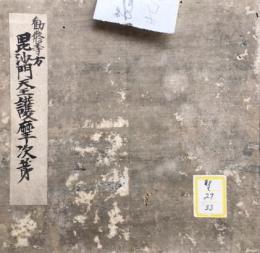 勧修寺方
毘沙門天王護摩次第
27
33